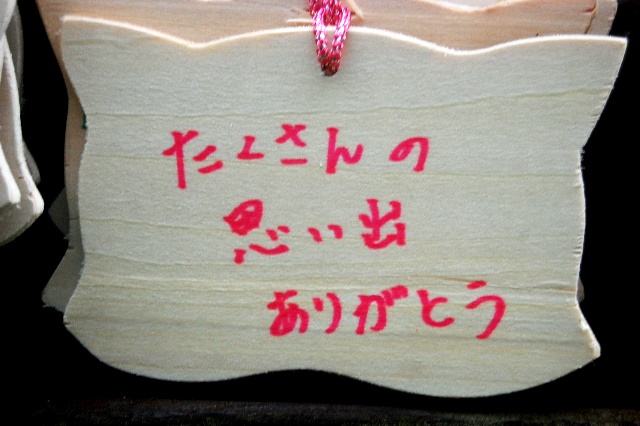 たくさんの
思い出
ありがとう